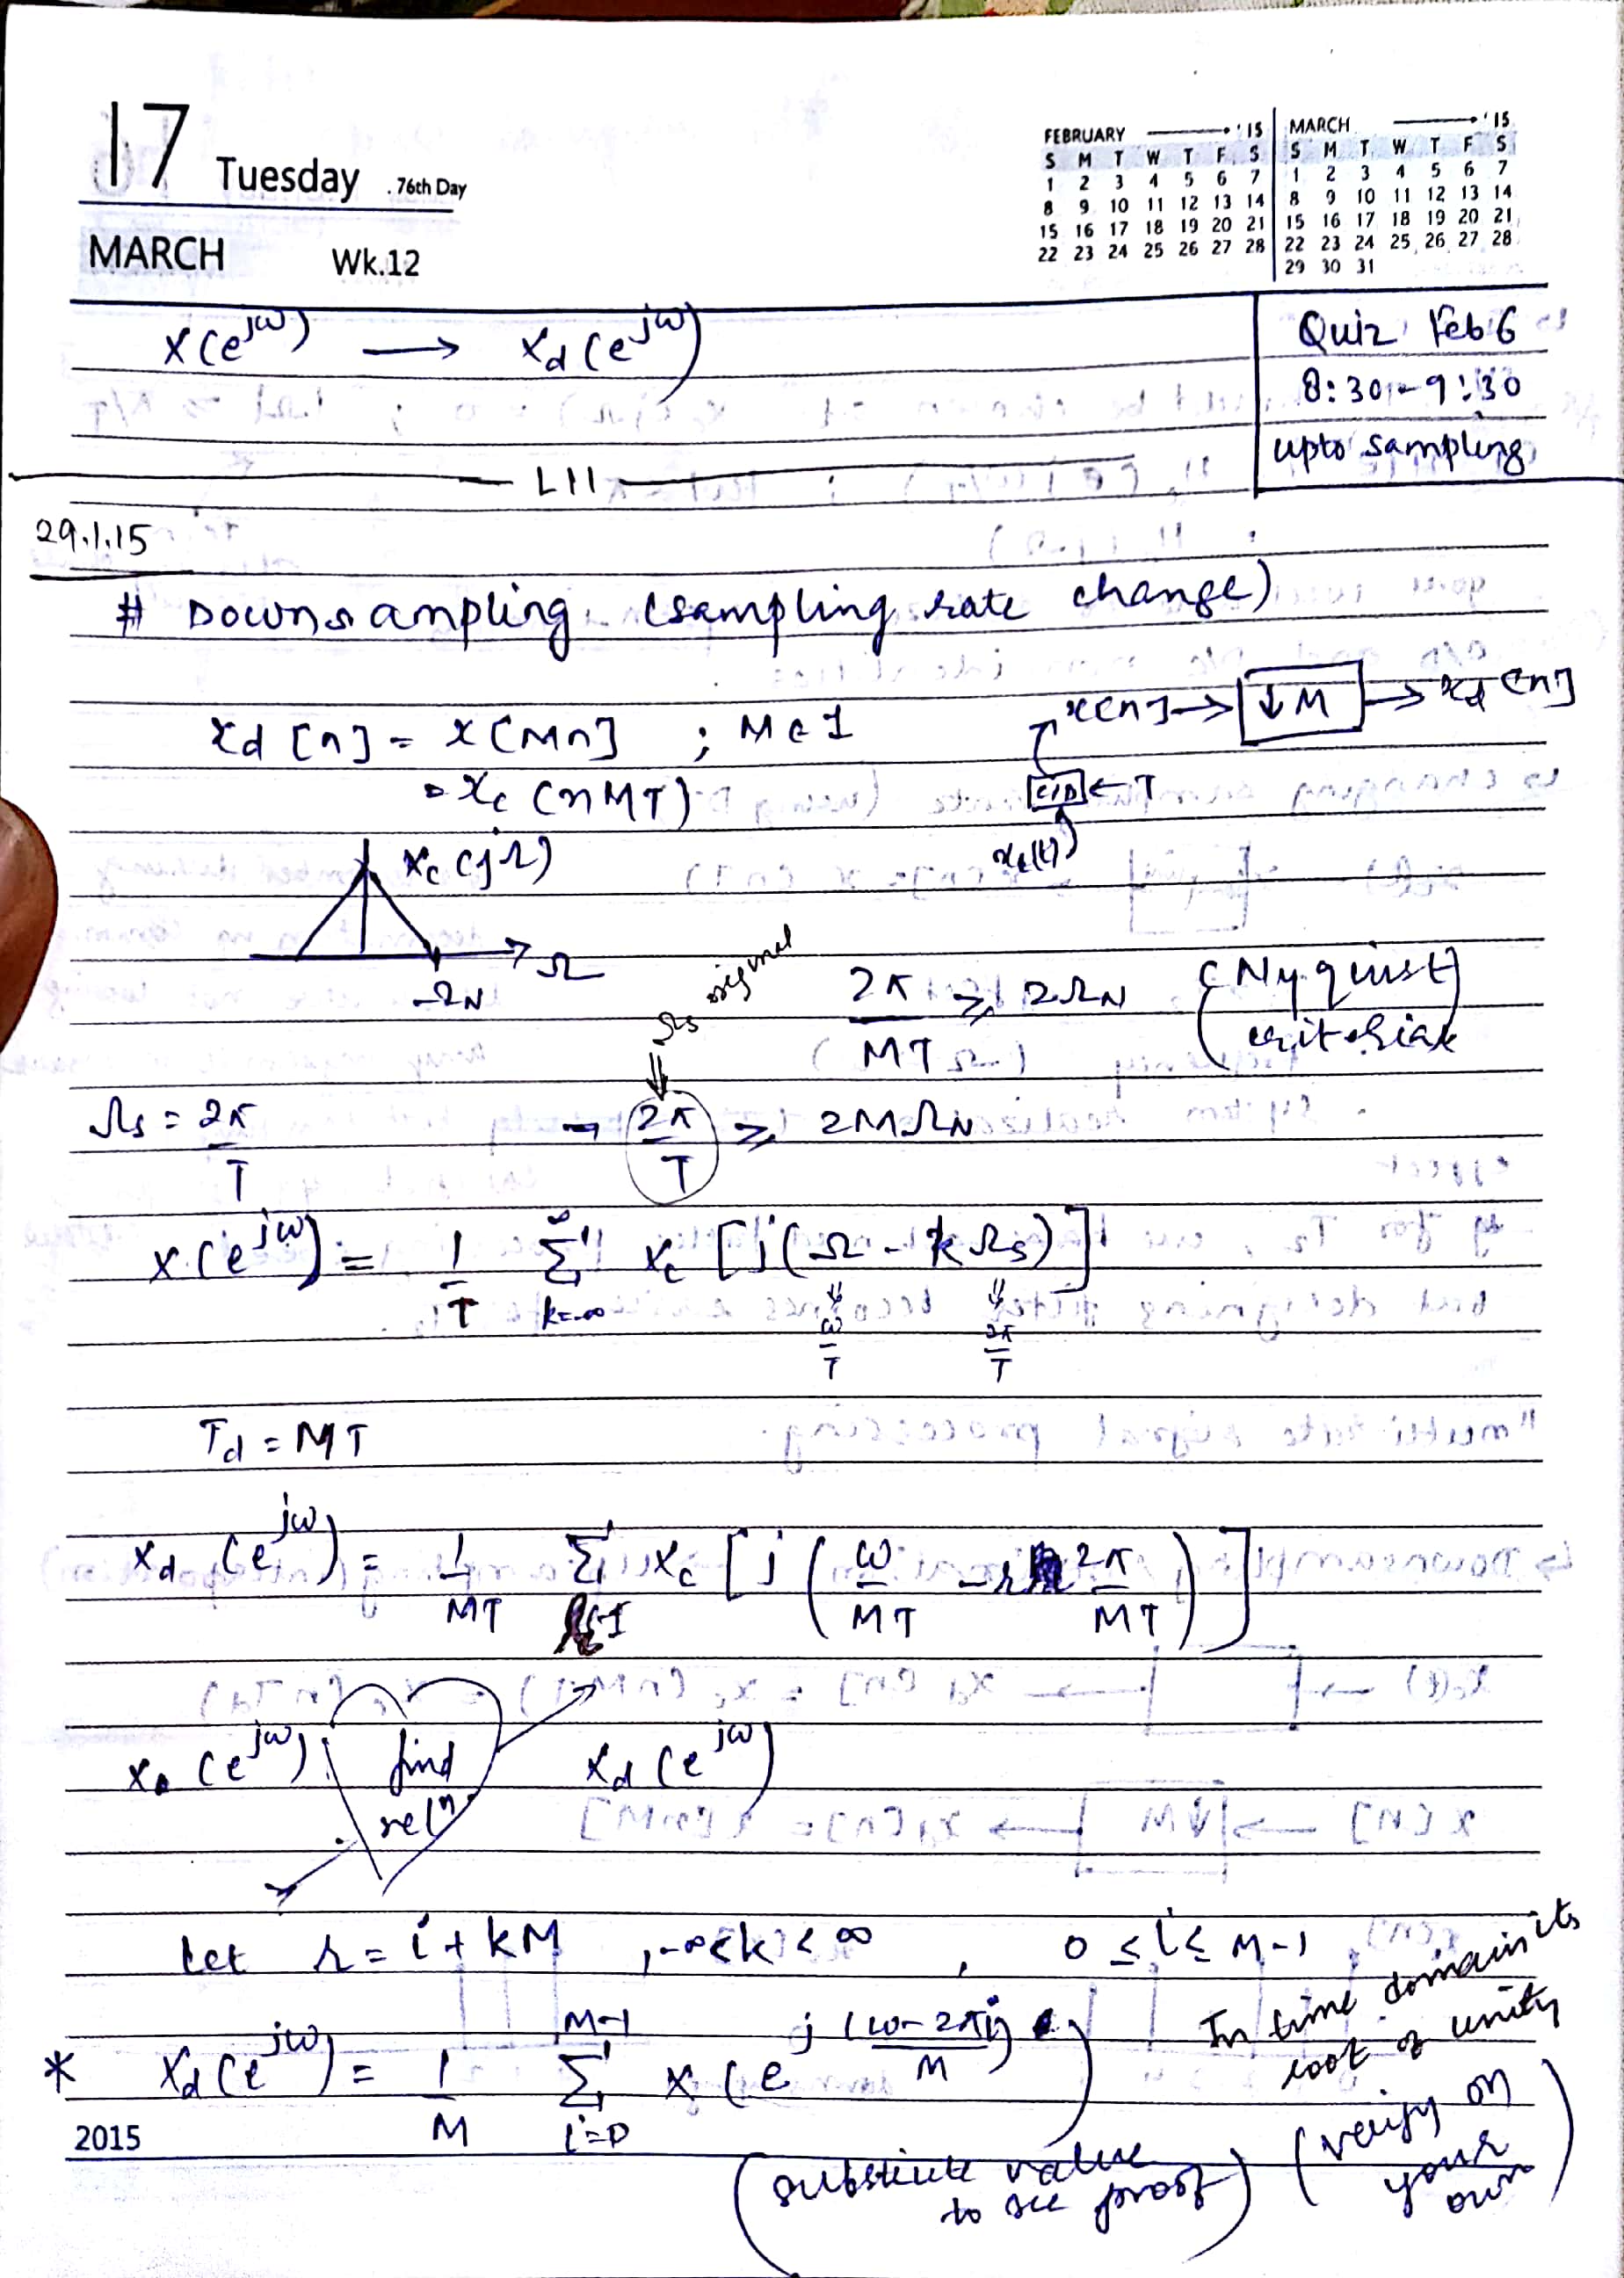 17 Tuesday . 76th Day
MARCH Wk.12
FEBRUARY '15
S M T W T F S
1 2 3 4 5 6 7
8 9 10 11 12 13 14
15 16 17 18 19 20 21
22 23 24 25 26 27 28
MARCH '15
S M T W T F S
1 2 3 4 5 6 7
8 9 10 11 12 13 14
15 16 17 18 19 20 21
22 23 24 25 26 27 28
29 30 31
X(e^{jω}) → X_d(e^{jω})
Quiz Feb 6
8:30 - 9:30
upto sampling
L11
29.1.15
# Downsampling (sampling rate change)
x_d[n] = x[Mn] ; M ∈ I
x[n] → ↓M → x_d[n]
= x_c(nMT)
C/D ← T
x_c(t)
X_c(jΩ)
Ω
Ω_N
Ω_s original
2π/MT ≥ 2Ω_N (Nyquist criteria)
Ω_s = 2π/T
→ 2π/T ≥ 2MΩ_N
X(e^{jω}) = 1/T Σ_{k=-∞}^{∞} X_c[j(Ω - kΩ_s)]
⇓ ω/T ⇓ 2π/T
T_d = MT
X_d(e^{jω}) = 1/MT Σ_{r∈I} X_c[j(ω/MT - r 2π/MT)]
X(e^{jω}) find rel^n. X_d(e^{jω})
Let r = i + kM , -∞<k<∞ , 0 ≤ i ≤ M-1
* X_d(e^{jω}) = 1/M Σ_{i=0}^{M-1} X(e^{j(ω-2πi)/M})
In time domain its
root of unity
(verify on
your
own)
(substitute value
to see proof)
2015